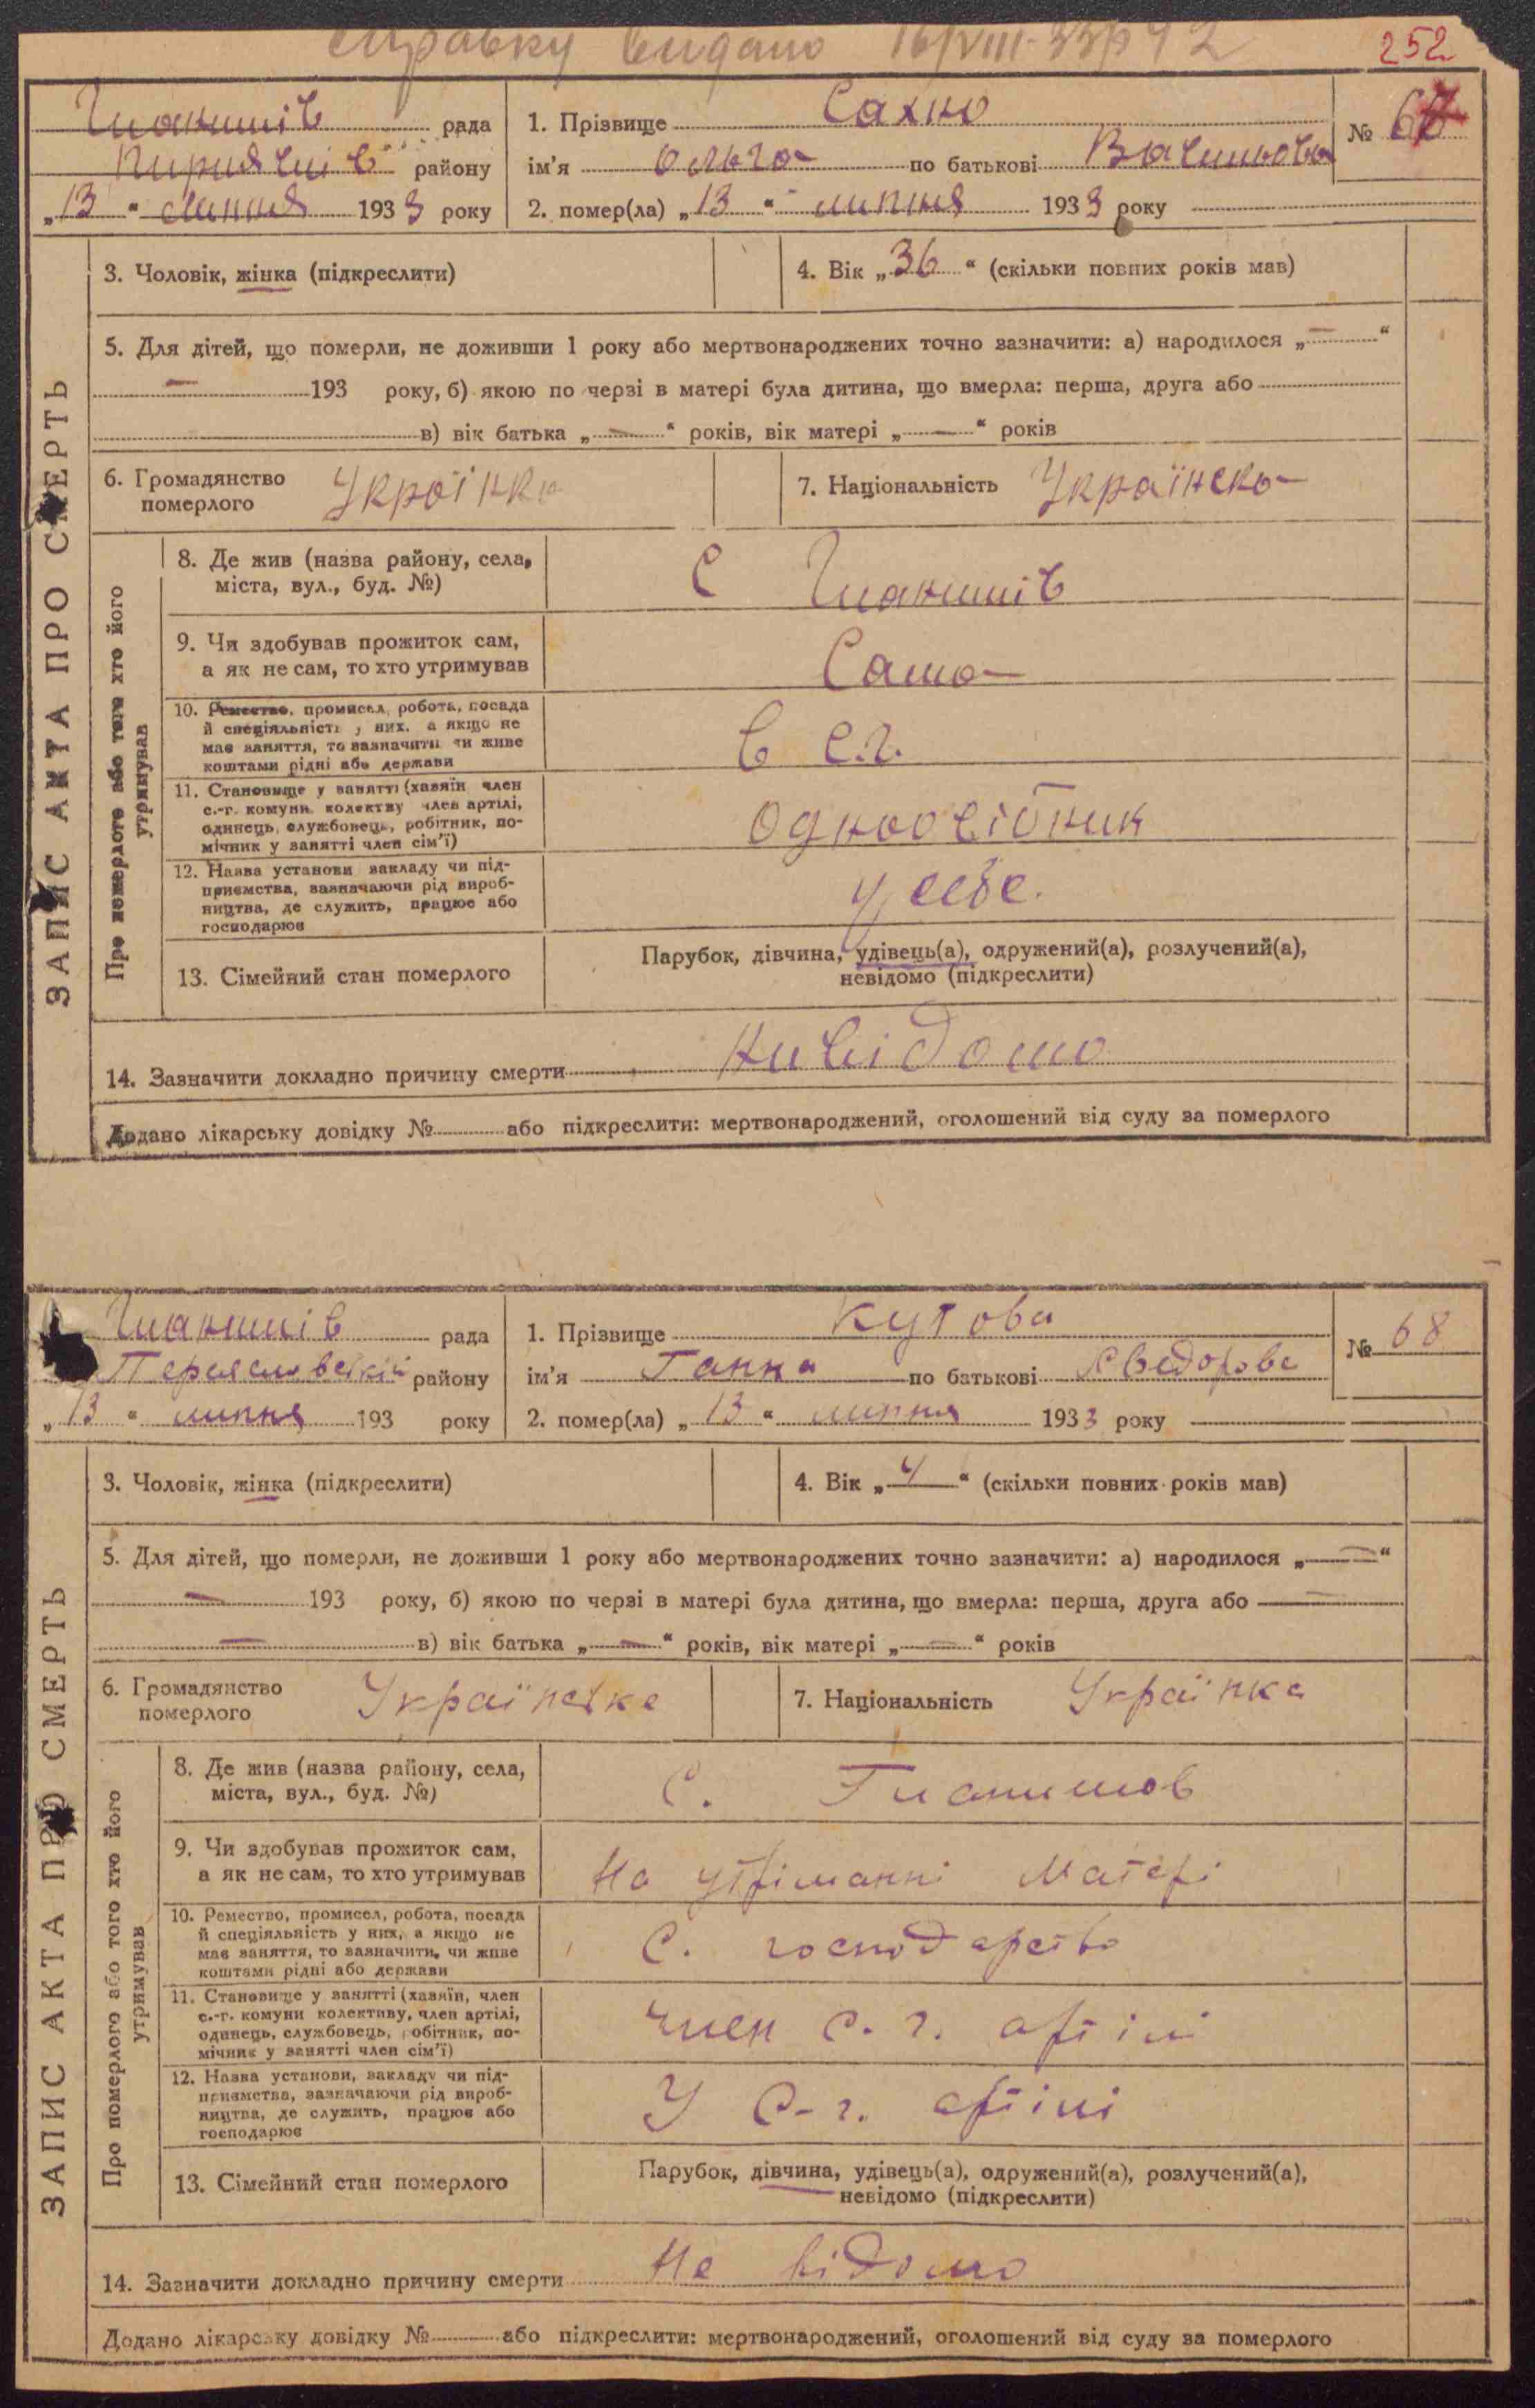 справку видано 16/VIII-33р 42
252
рада
1. Прізвище Сахно
№ 67
району
ім'я Ольга по батькові
„13“ липня 1933 року
2. помер(ла) „13“ липня 1933 року
ЗАПИС АКТА ПРО СМЕРТЬ
3. Чоловік, жінка (підкреслити)
4. Вік „36“ (скільки повних років мав)
5. Для дітей, що померли, не доживши 1 року або мертвонароджених точно зазначити: а) народилося „—“
— 193 року, б) якою по черзі в матері була дитина, що вмерла: перша, друга або
в) вік батька „—“ років, вік матері „—“ років
6. Громадянство
померлого
Українка
7. Національність Українска
Про померлого або того хто його
утримував
8. Де жив (назва району, села,
міста, вул., буд. №)
с
9. Чи здобував прожиток сам,
а як не сам, то хто утримував
Сама
10. Ремество, промисел, робота, посада
й спеціяльність у них, а якщо не
має заняття, то зазначити чи живе
коштами рідні або держави
в с.г.
11. Становище у занятті (хазяїн член
с.-г. комуни колективу член артілі,
одинець, службовець, робітник, по-
мічник у занятті член сім'ї)
одноосібник
12. Назва установи закладу чи під-
приємства, зазначаючи рід вироб-
ництва, де служить, працює або
господарює
у себе.
13. Сімейний стан померлого
Парубок, дівчина, удівець(а), одружений(а), розлучений(а),
невідомо (підкреслити)
14. Зазначити докладно причину смерти Нивідомо
Додано лікарську довідку № або підкреслити: мертвонароджений, оголошений від суду за померлого
рада
1. Прізвище Кутова
№ 68
району
ім'я Ганна по батькові
„13“ липня 193 року
2. помер(ла) „13“ липня 1933 року
ЗАПИС АКТА ПРО СМЕРТЬ
3. Чоловік, жінка (підкреслити)
4. Вік „4“ (скільки повних років мав)
5. Для дітей, що померли, не доживши 1 року або мертвонароджених точно зазначити: а) народилося „—“
— 193 року, б) якою по черзі в матері була дитина, що вмерла: перша, друга або —
— в) вік батька „—“ років, вік матері „—“ років
6. Громадянство
померлого
Українска
7. Національність Українка
Про померлого або того хто його
утримував
8. Де жив (назва району, села,
міста, вул., буд. №)
с.
9. Чи здобував прожиток сам,
а як не сам, то хто утримував
На утріманні матері
10. Ремество, промисел, робота, посада
й спеціяльність у них, а якщо не
має заняття, то зазначити, чи живе
коштами рідні або держави
С. господарство
11. Становище у занятті (хазяїн, член
с.-г. комуни колективу, член артілі,
одинець, службовець, робітник, по-
мічник у занятті член сім'ї)
член с. г. артілі
12. Назва установи, закладу чи під-
приємства, зазначаючи рід вироб-
ництва, де служить, працює або
господарює
У с-г. артілі
13. Сімейний стан померлого
Парубок, дівчина, удівець(а), одружений(а), розлучений(а),
невідомо (підкреслити)
14. Зазначити докладно причину смерти Не відомо
Додано лікарську довідку № або підкреслити: мертвонароджений, оголошений від суду за померлого